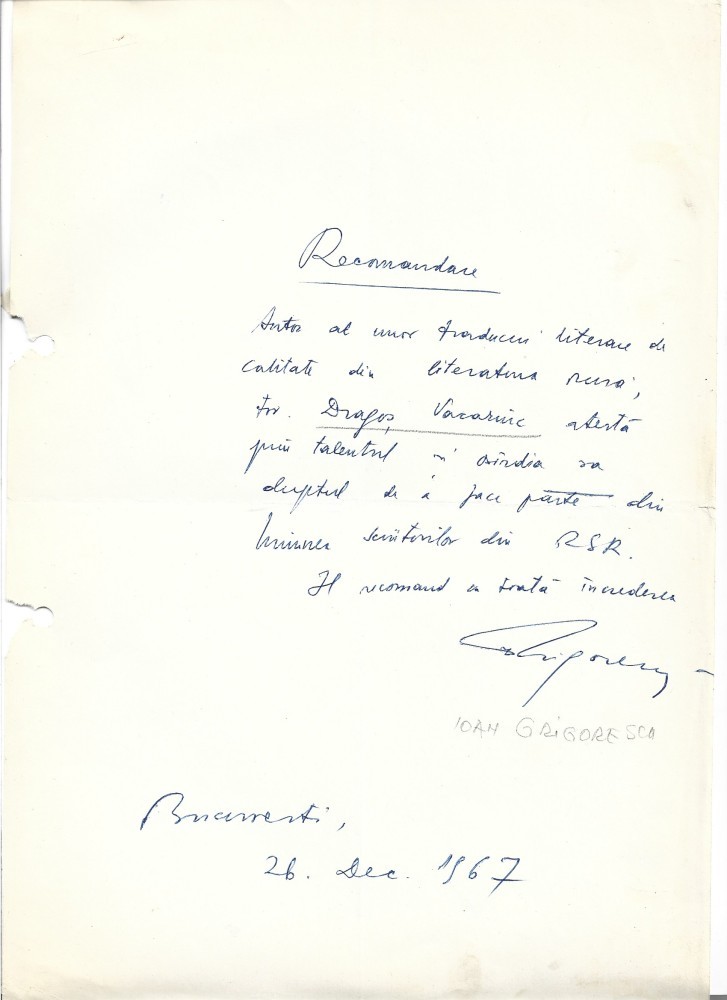 Recomandare
Autor al unor traduceri literare de
calitate din literatura rusă,
tov. Dragoș Vacariuc atestă
prin talentul și osîrdia sa
dreptul de a face parte din
Uniunea scriitorilor din RSR.
Îl recomand cu toată încrederea
Grigorescu
IOAN GRIGORESCU
București,
26. Dec. 1967